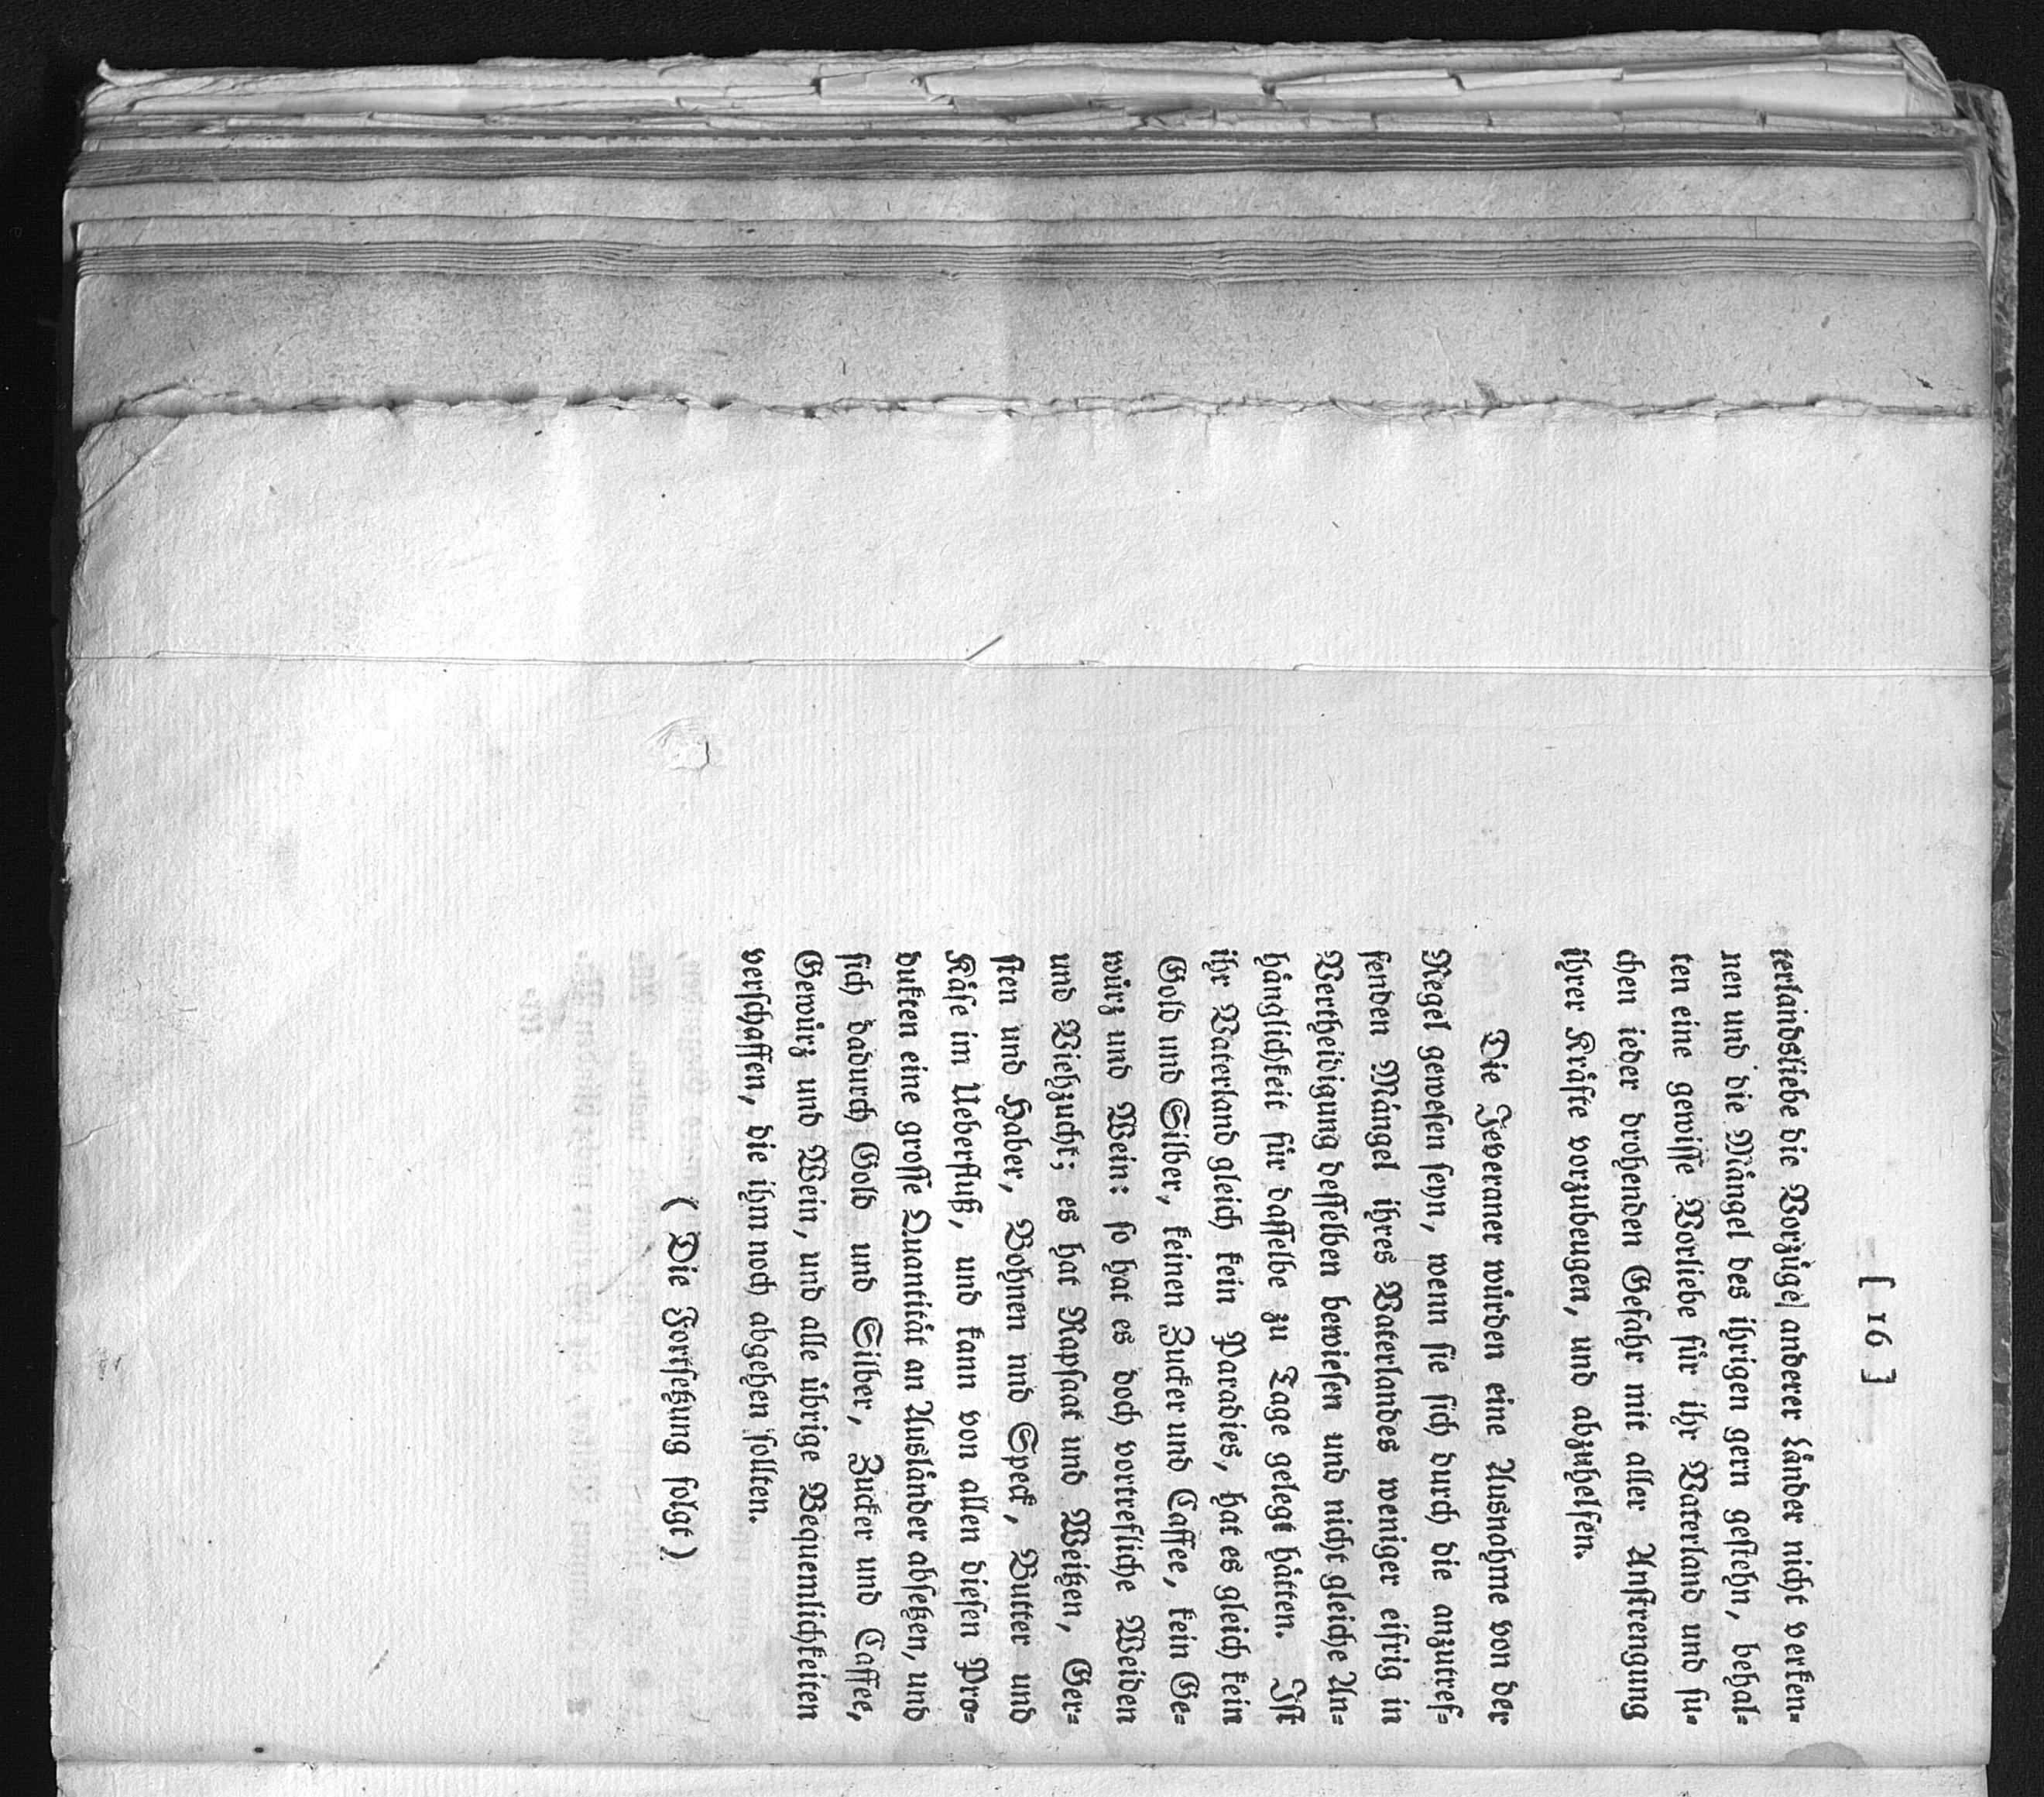 [ 16 ]
terlandsliebe die Vorzüge anderer Länder nicht verken-
nen und die Mängel des ihrigen gern gestehn, behal-
ten eine gewisse Vorliebe für ihr Vaterland und su-
chen ieder drohenden Gefahr mit aller Anstrengung
ihrer Kräfte vorzubeugen, und abzuhelfen.
Die Jeveraner würden eine Ausnahme von der
Regel gewesen seyn, wenn sie sich durch die anzutref-
fenden Mängel ihres Vaterlandes weniger eifrig in
Vertheidigung desselben bewiesen und nicht gleiche An-
hänglichkeit für dasselbe zu Tage gelegt hätten. Ist
ihr Vaterland gleich kein Paradies, hat es gleich kein
Gold und Silber, keinen Zucker und Caffee, kein Ge-
würz und Wein: so hat es doch vortrefliche Weiden
und Viehzucht; es hat Rapsaat und Weitzen, Ger-
sten und Haber, Bohnen und Speck, Butter und
Käse im Ueberfluß, und kann von allen diesen Pro-
dukten eine grosse Quantität an Ausländer absetzen, und
sich dadurch Gold und Silber, Zucker und Caffee,
Gewürz und Wein, und alle übrige Bequemlichkeiten
verschaffen, die ihm noch abgehen sollten.
( Die Fortsetzung folgt )